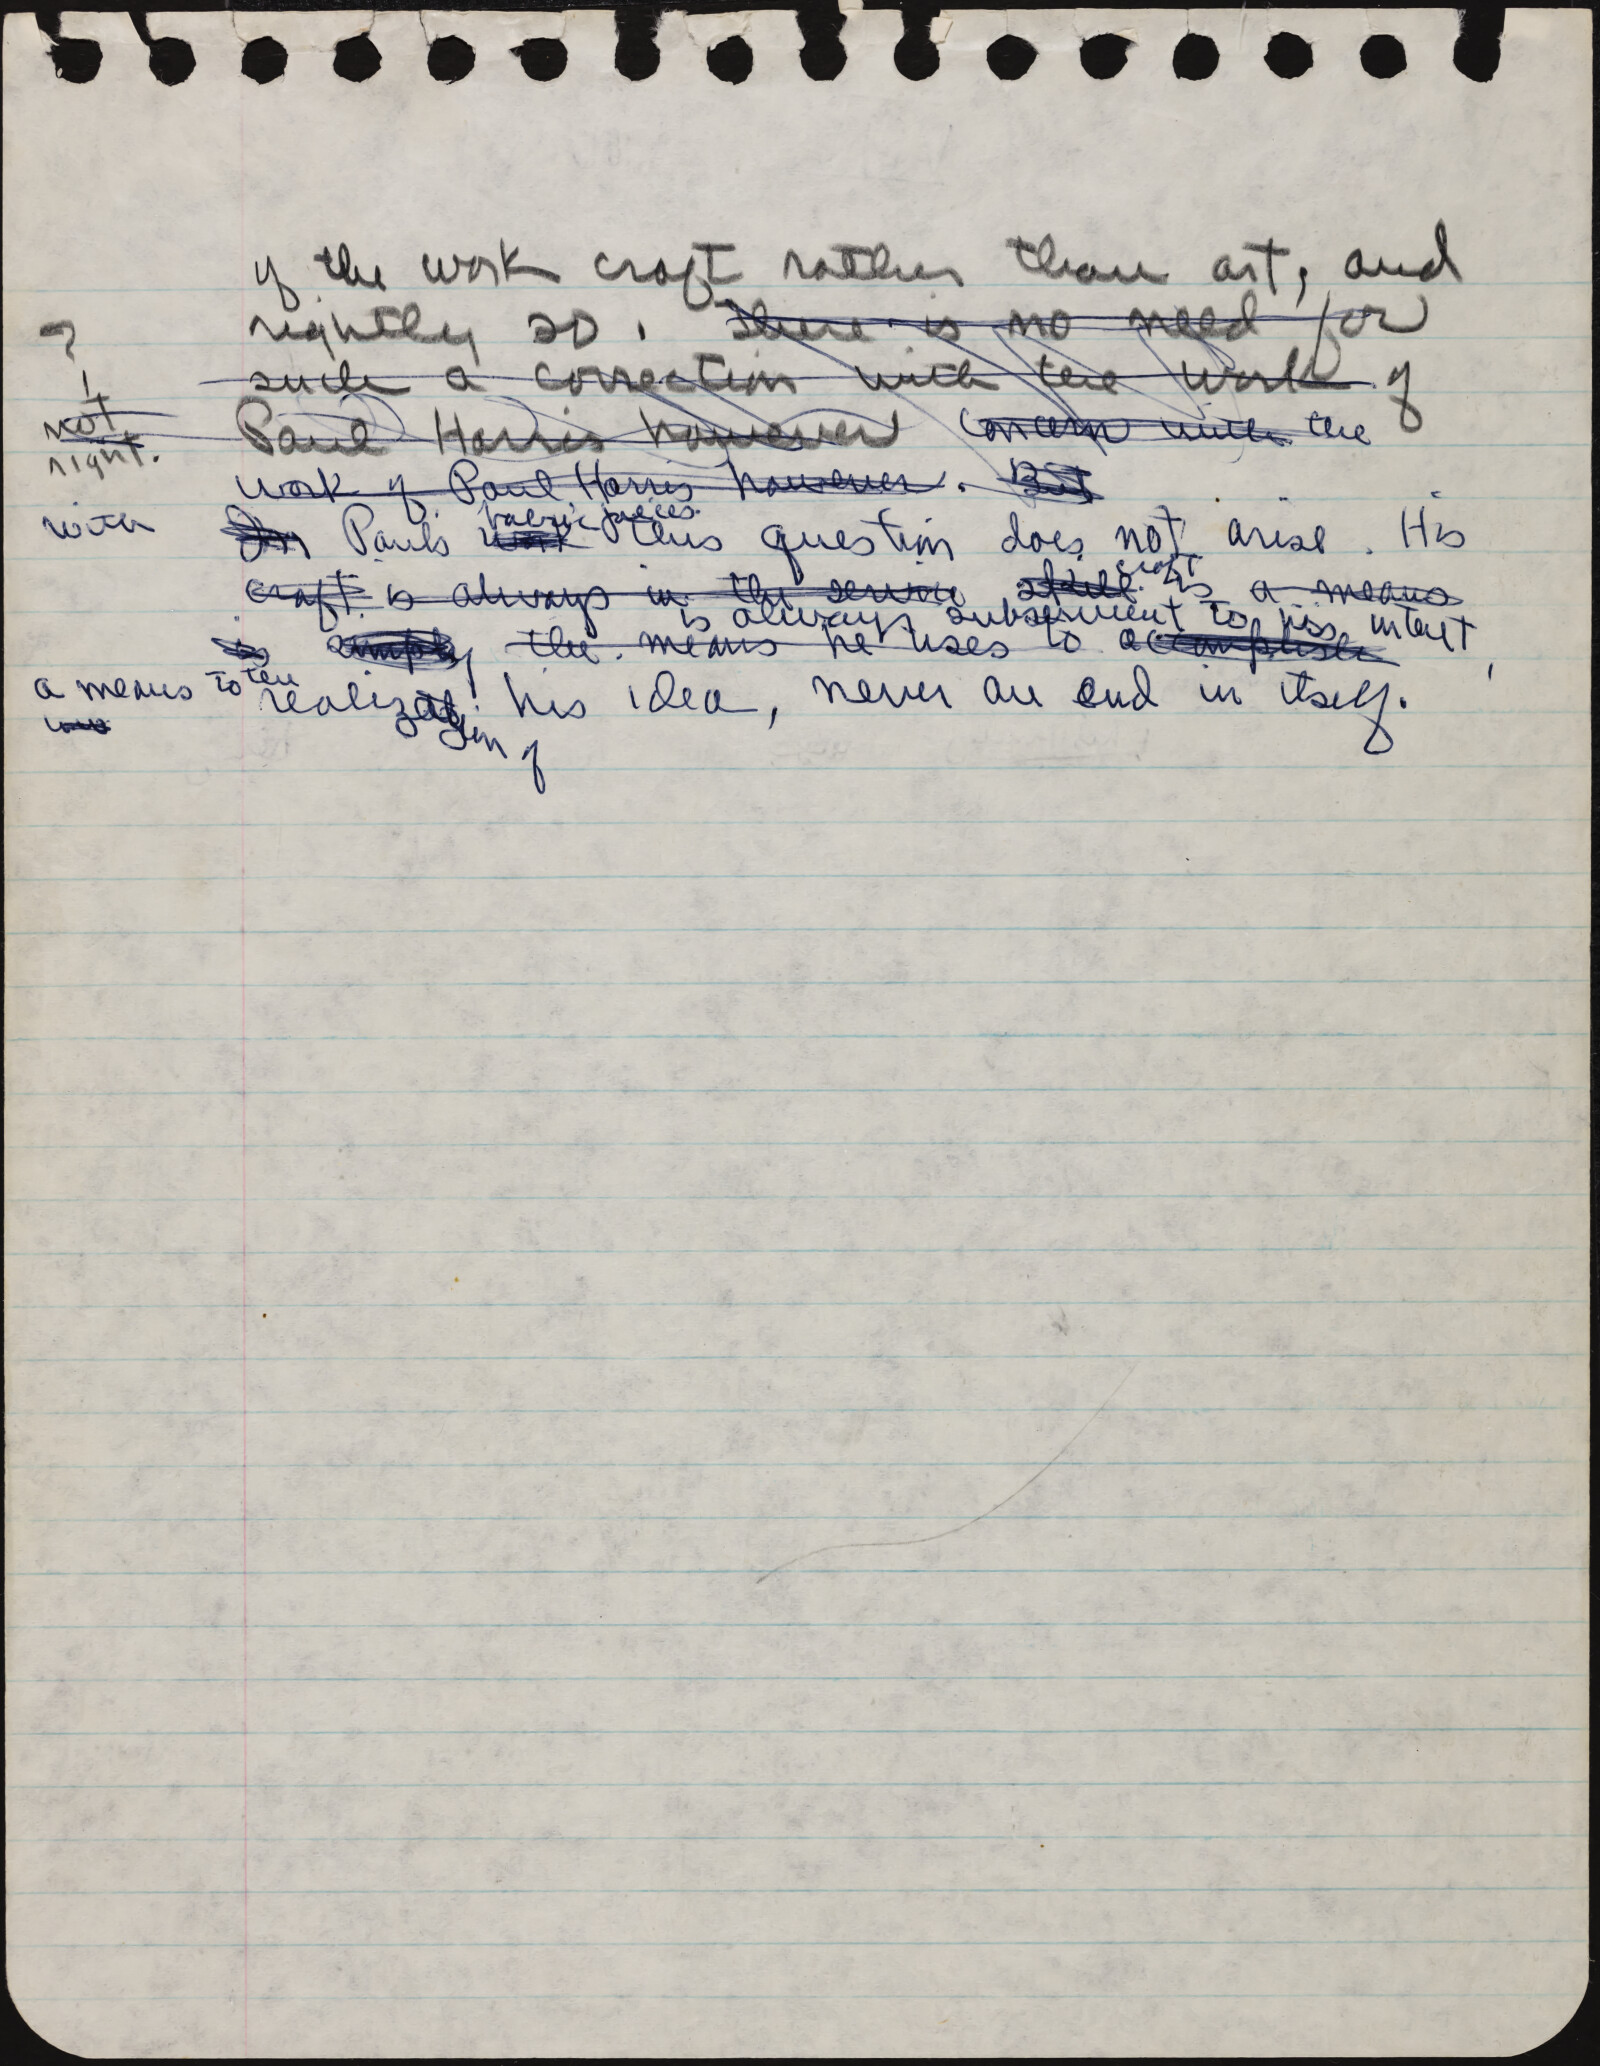 of the work craft rather than art, and
?
rightly so. There is no need for
such a correction with the work of
not
right.
Paul Harris however concern with the
work of Paul Harris however. But
with
fabric pieces.
In Paul's work this question does not arise. His
craft
craft is always in the service skill is a means
is always subservient to his intent,
is simply the means he uses to accomplish
a means to the
realize his idea, never an end in itself.
of